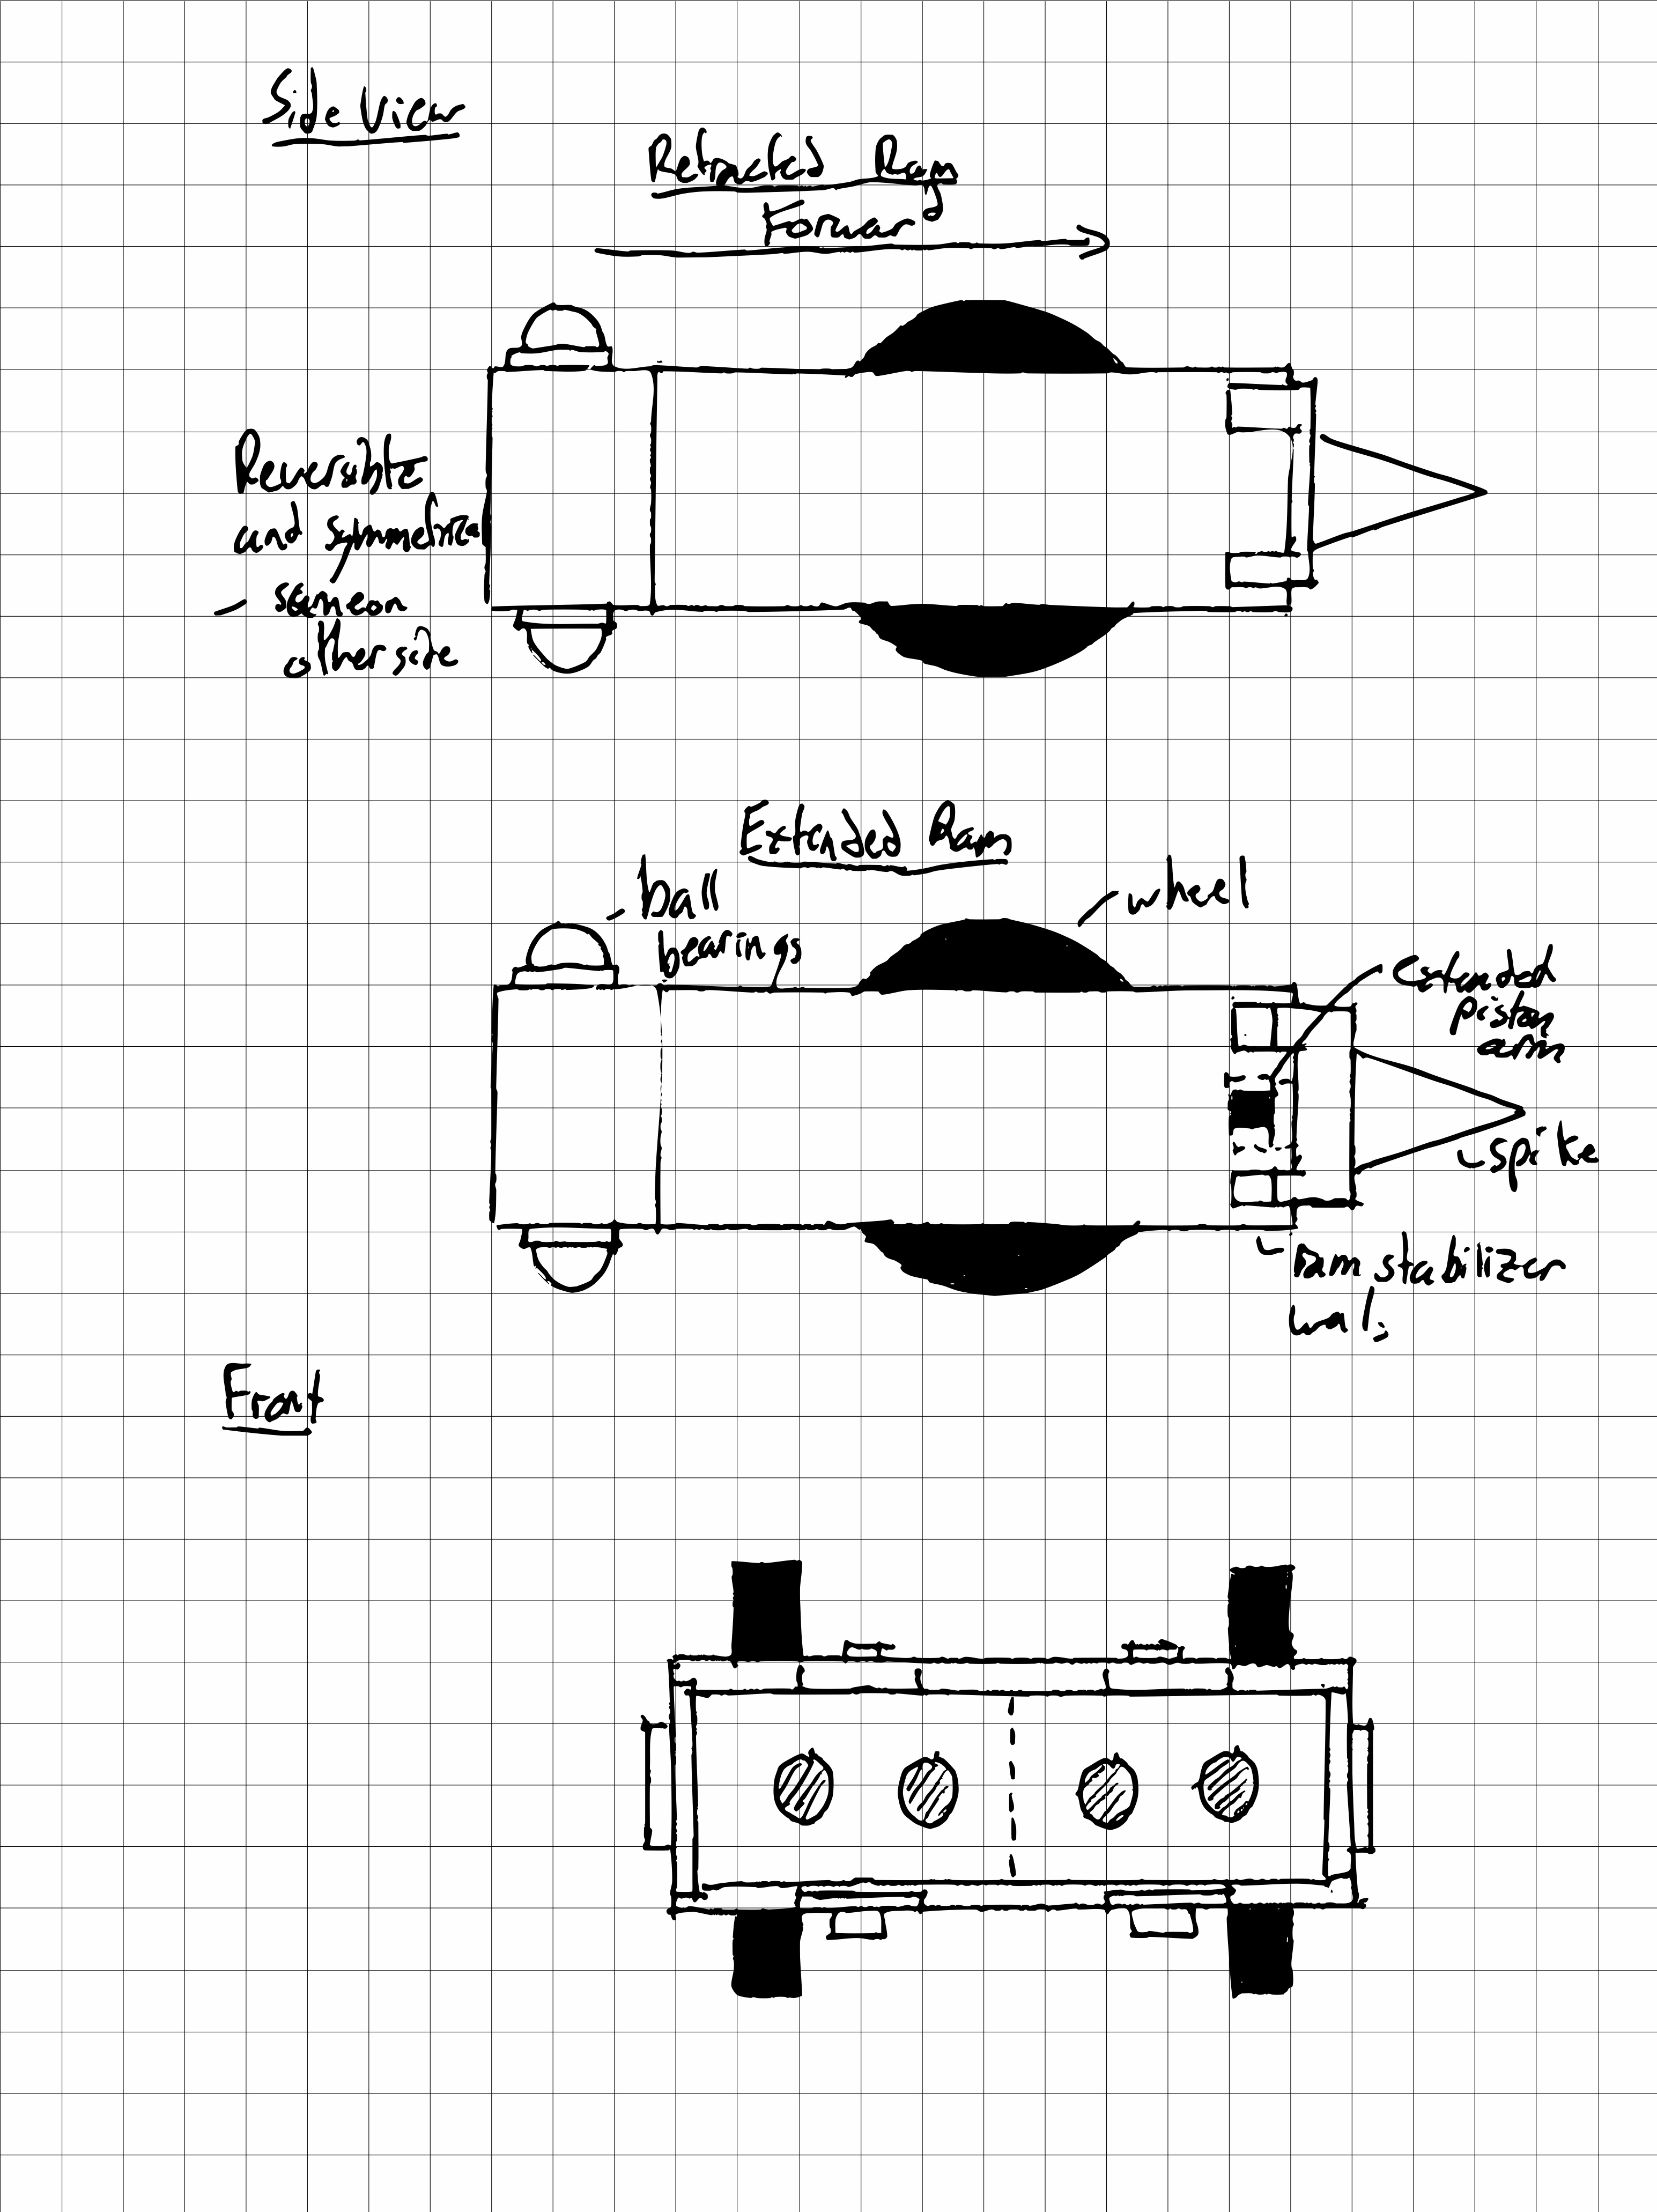 Side View
Retracted Ram
Forward
Reversible
and symmetrical
- same on
other side
Extended Ram
ball
bearings
wheel
extended
piston
arm
spike
ram stabilizer
wall
Front